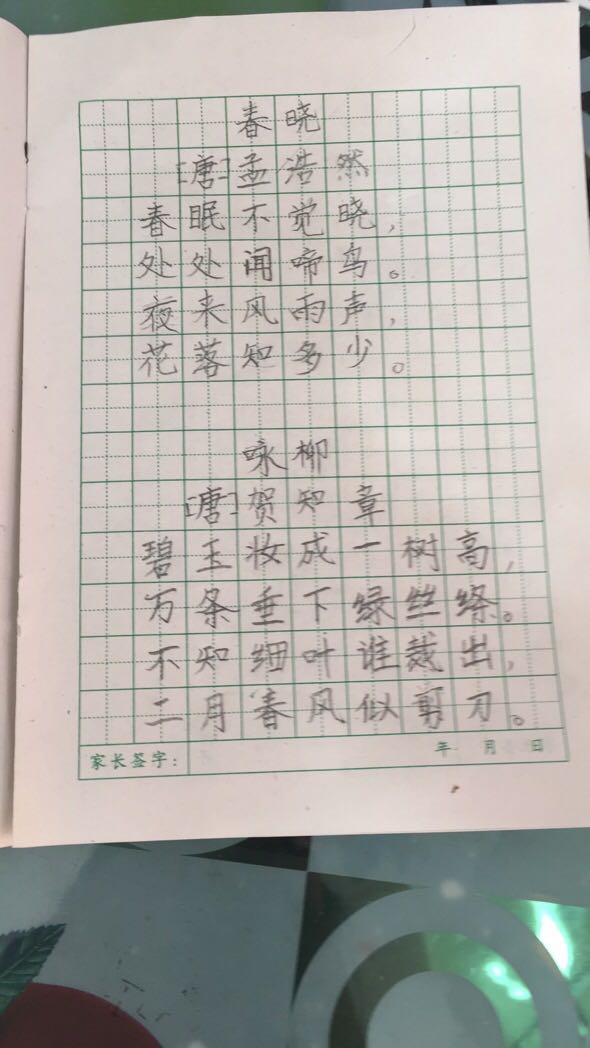 春晓
[唐]孟浩然
春眠不觉晓，
处处闻啼鸟。
夜来风雨声，
花落知多少。
咏柳
[唐]贺知章
碧玉妆成一树高，
万条垂下绿丝绦。
不知细叶谁裁出，
二月春风似剪刀。
家长签字： 年 月 日